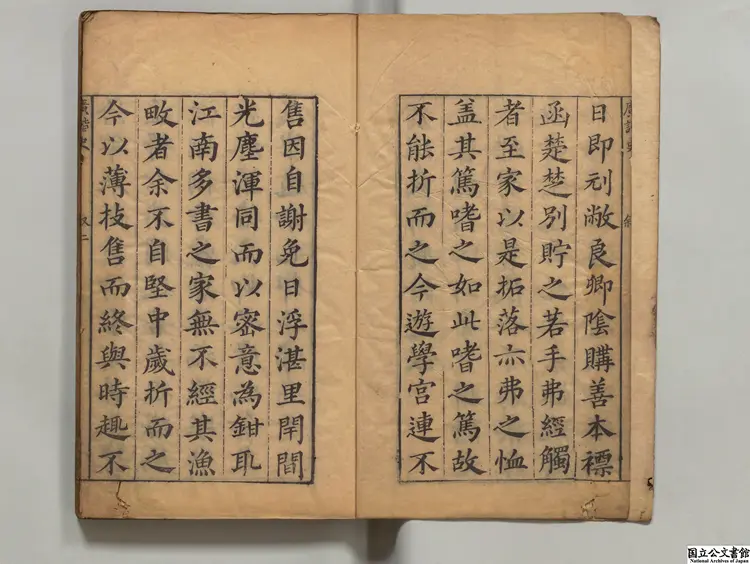 日即刓敝良卿隂購善本褾
函楚楚別貯之若手弗經觸
者至家以是拓落亦弗之恤
盖其篤嗜之如此嗜之篤故
不能折而之今遊學宫連不
售因自謝免日浮湛里閈間
光塵渾同而以宻意為鉗耴
江南多書之家無不經其漁
畋者余不自堅中歲折而之
今以薄技售而終與時趣不
廣諧史
国立公文書館
National Archives of Japan